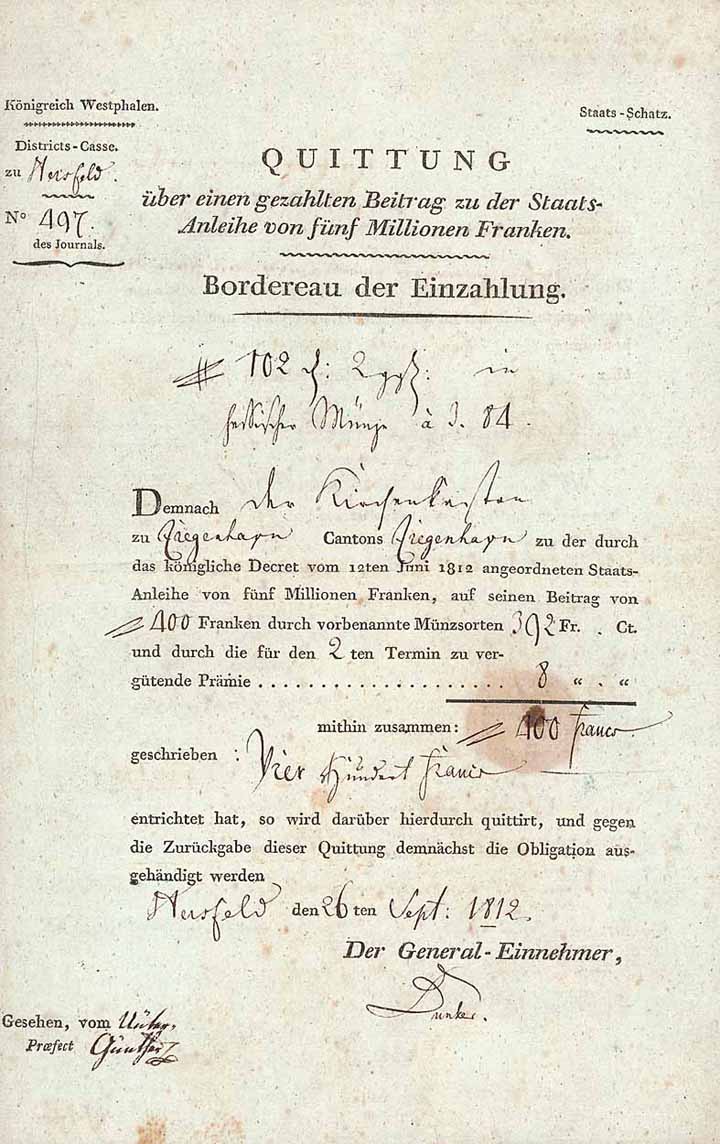 Königreich Westphalen.
Staats-Schatz.
Districts-Casse.
zu Hersfeld.
N° 497.
des Journals.
QUITTUNG
über einen gezahlten Beitrag zu der Staats-
Anleihe von fünf Millionen Franken.
Bordereau der Einzahlung.
102 2 in
hessischer Münze à 3. 84.
Demnach der Kirchenkasten
zu Ziegenhayn Cantons Ziegenhayn zu der durch
das königliche Decret vom 12ten Juni 1812 angeordneten Staats-
Anleihe von fünf Millionen Franken, auf seinen Beitrag von
400 Franken durch vorbenannte Münzsorten 392 Fr. . Ct.
und durch die für den 2 ten Termin zu ver-
gütende Prämie . . . . . . . . . . . . . . . . . . . . 8 “ . “
mithin zusammen: 400 Francs.
geschrieben : Vier Hundert Francs
entrichtet hat, so wird darüber hierdurch quittirt, und gegen
die Zurückgabe dieser Quittung demnächst die Obligation aus-
gehändigt werden
Hersfeld den 26 ten Sept: 1812.
Der General-Einnehmer,
Dunker.
Gesehen, vom Unter-
Præfect Günther